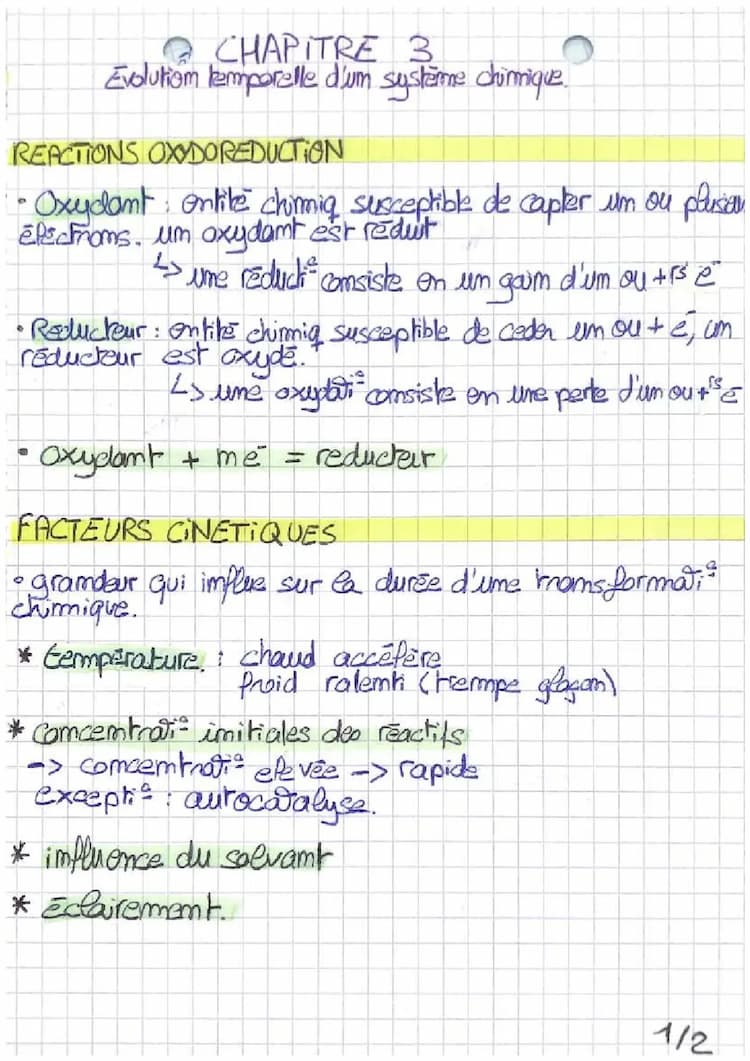 CHAPITRE 3
Évolution temporelle d'un système chimique.
REACTIONS OXYDOREDUCTION
• Oxydant : entité chimiq susceptible de capter un ou plusieu
électrons. un oxydant est réduit
↳ une réducti° consiste en un gain d'un ou +rs e⁻
• Reducteur : entité chimiq susceptible de ceder un ou + e⁻, un
réducteur est oxydé.
↳ une oxydati° consiste en une perte d'un ou +rs e⁻
• Oxydant + ne⁻ = reducteur
FACTEURS CINETIQUES
• grandeur qui influe sur la durée d'une transformati°
chimique.
* température : chaud accélère
froid ralenti (trempe glaçon)
* concentrati° initiales des réactifs
-> concentrati° elevée -> rapide
excepti° : autocatalyse.
* influence du solvant
* Éclairement.
1/2